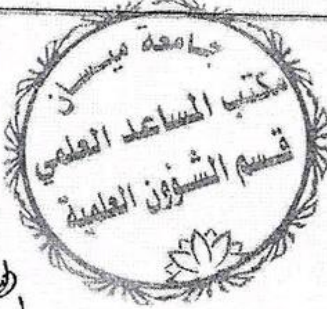 جامعة ميسان
مكتب المساعد العلمي
قسم الشؤون العلمية